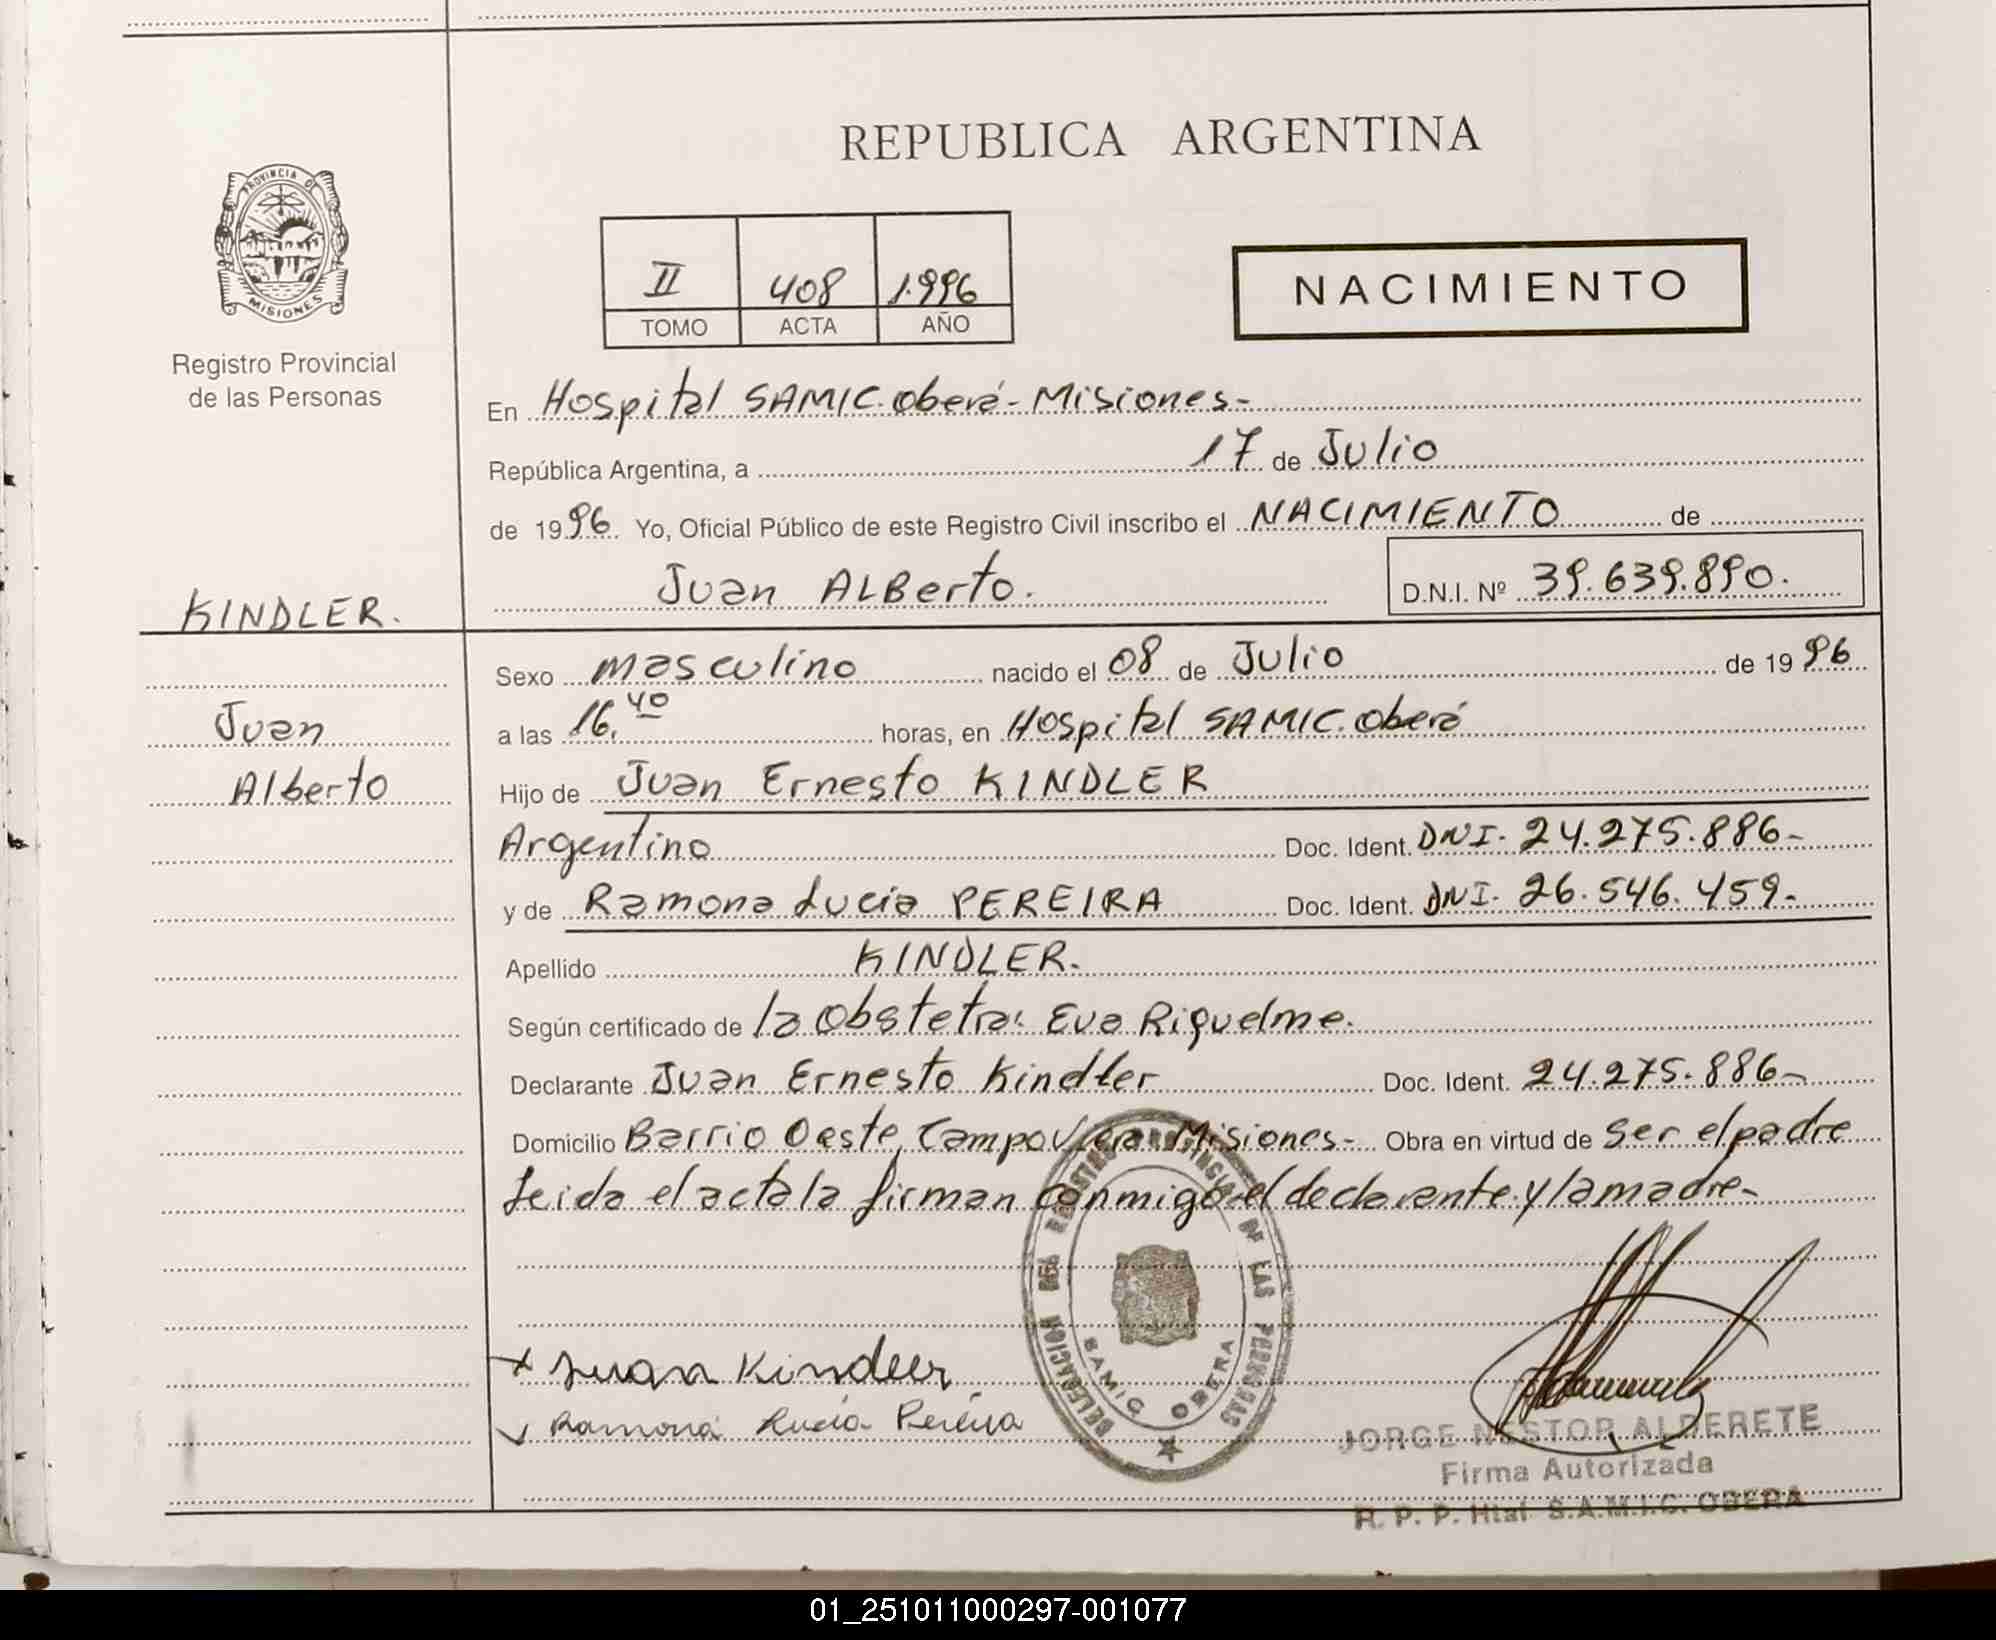 REPUBLICA ARGENTINA
PROVINCIA DE
MISIONES
Registro Provincial
de las Personas
II 408 1.996
TOMO ACTA AÑO
NACIMIENTO
En Hospital SAMIC. Oberá - Misiones-
República Argentina, a 17 de Julio
de 1996. Yo, Oficial Público de este Registro Civil inscribo el NACIMIENTO de
Juan ALBerto. D.N.I. Nº 39.639.890.
KINDLER.
Juan
Alberto
Sexo masculino nacido el 08 de Julio de 1996
a las 16.40 horas, en Hospital SAMIC. Oberá
Hijo de Juan Ernesto KINDLER
Argentino Doc. Ident. DNI. 24.275.886-
y de Ramona Lucia PEREIRA Doc. Ident. DNI. 26.546.459-
Apellido KINDLER.
Según certificado de la Obstetra: Eva Riquelme.
Declarante Juan Ernesto Kindler Doc. Ident. 24.275.886-
Domicilio Barrio Oeste, Campo Viera Misiones- Obra en virtud de ser el padre
Leida el acta la firman conmigo el declarante y la madre-
DELEGACION DEL REGISTRO PROVINCIAL DE LAS PERSONAS
SAMIC OBERA
Juan Kindler
Ramona Lucia Pereira
JORGE NESTOR ALDERETE
Firma Autorizada
R. P. P. Htal S.A.M.I.C. OBERA
01_251011000297-001077